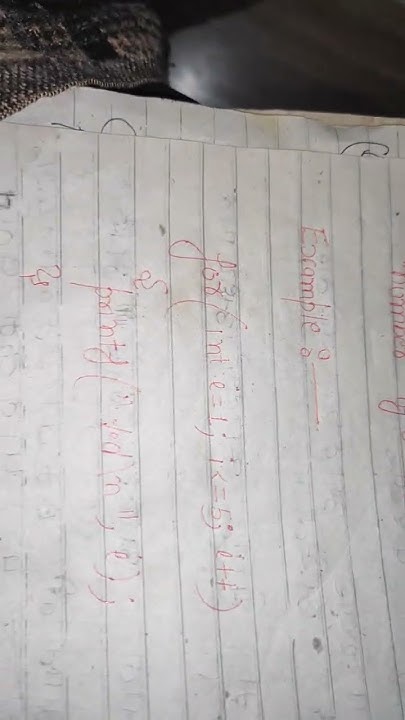 Example :
for(int i=1; i<=5; i++)
{
printf("%d\n", i);
}